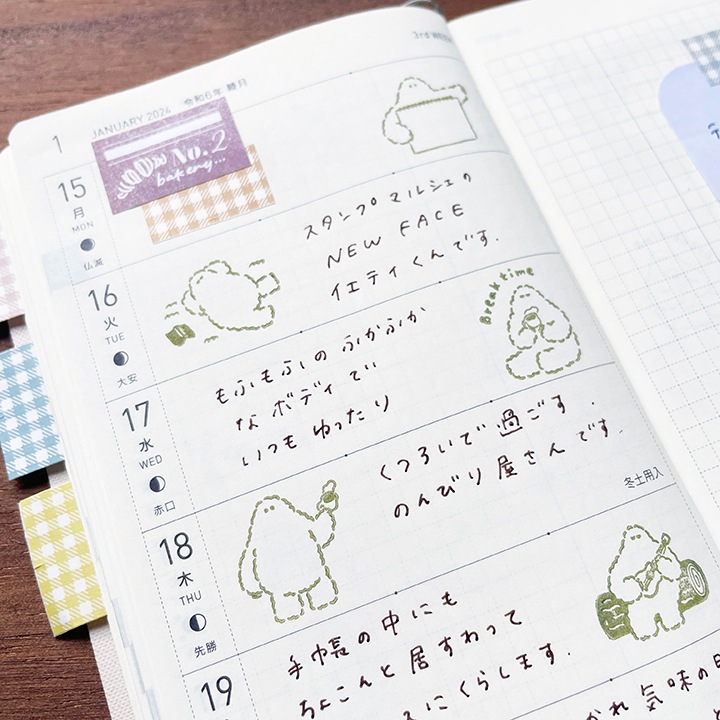 1 JANUARY 2024 令和6年 睦月
3rd WEE
No.2
bakery...
15
月
MON
仏滅
スタンプマルシェの
NEW FACE
イエティくんです.
16
火
TUE
大安
Break time
もふもふしの ふかふか
な ボディで
いつも ゆったり
17
水
WED
赤口
くつろいで 過ごす.
のんびり 屋さんです.
冬土用入
18
木
THU
先勝
手帳の 中にも
ちょこんと 居すわって
にくらします.
19
れ 気味の